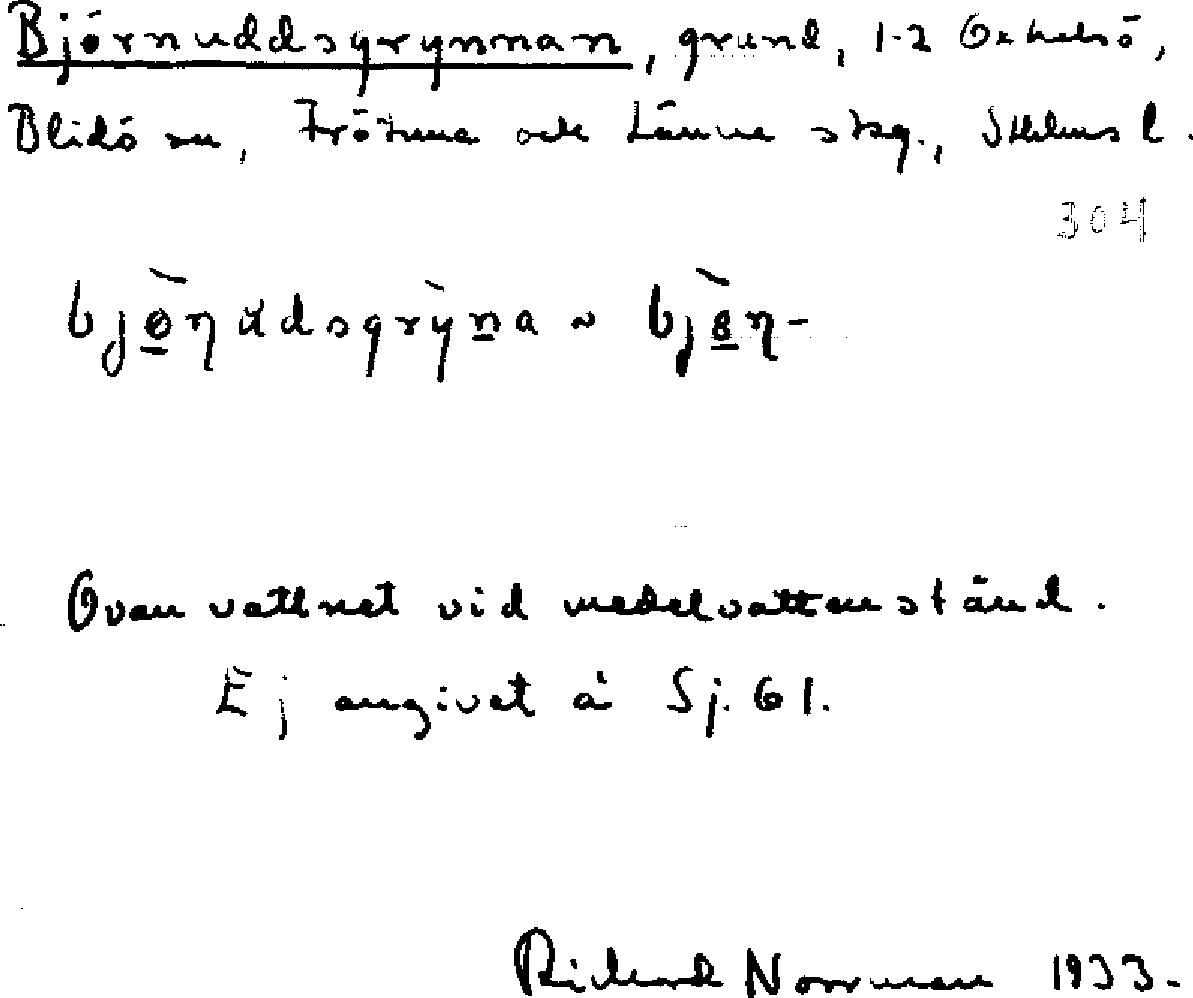 Björnuddsgrynnan, grund, 1-2 Oxhalsö,
Blidö sn, Frötuna och Länna skg., Sthlms l.
304
bjö̀nuddsgrỳna ~ bjö̀n-
Ovan vattnet vid medelvattenstånd.
Ej angivet å Sj. 61.
Richard Norrman 1933.